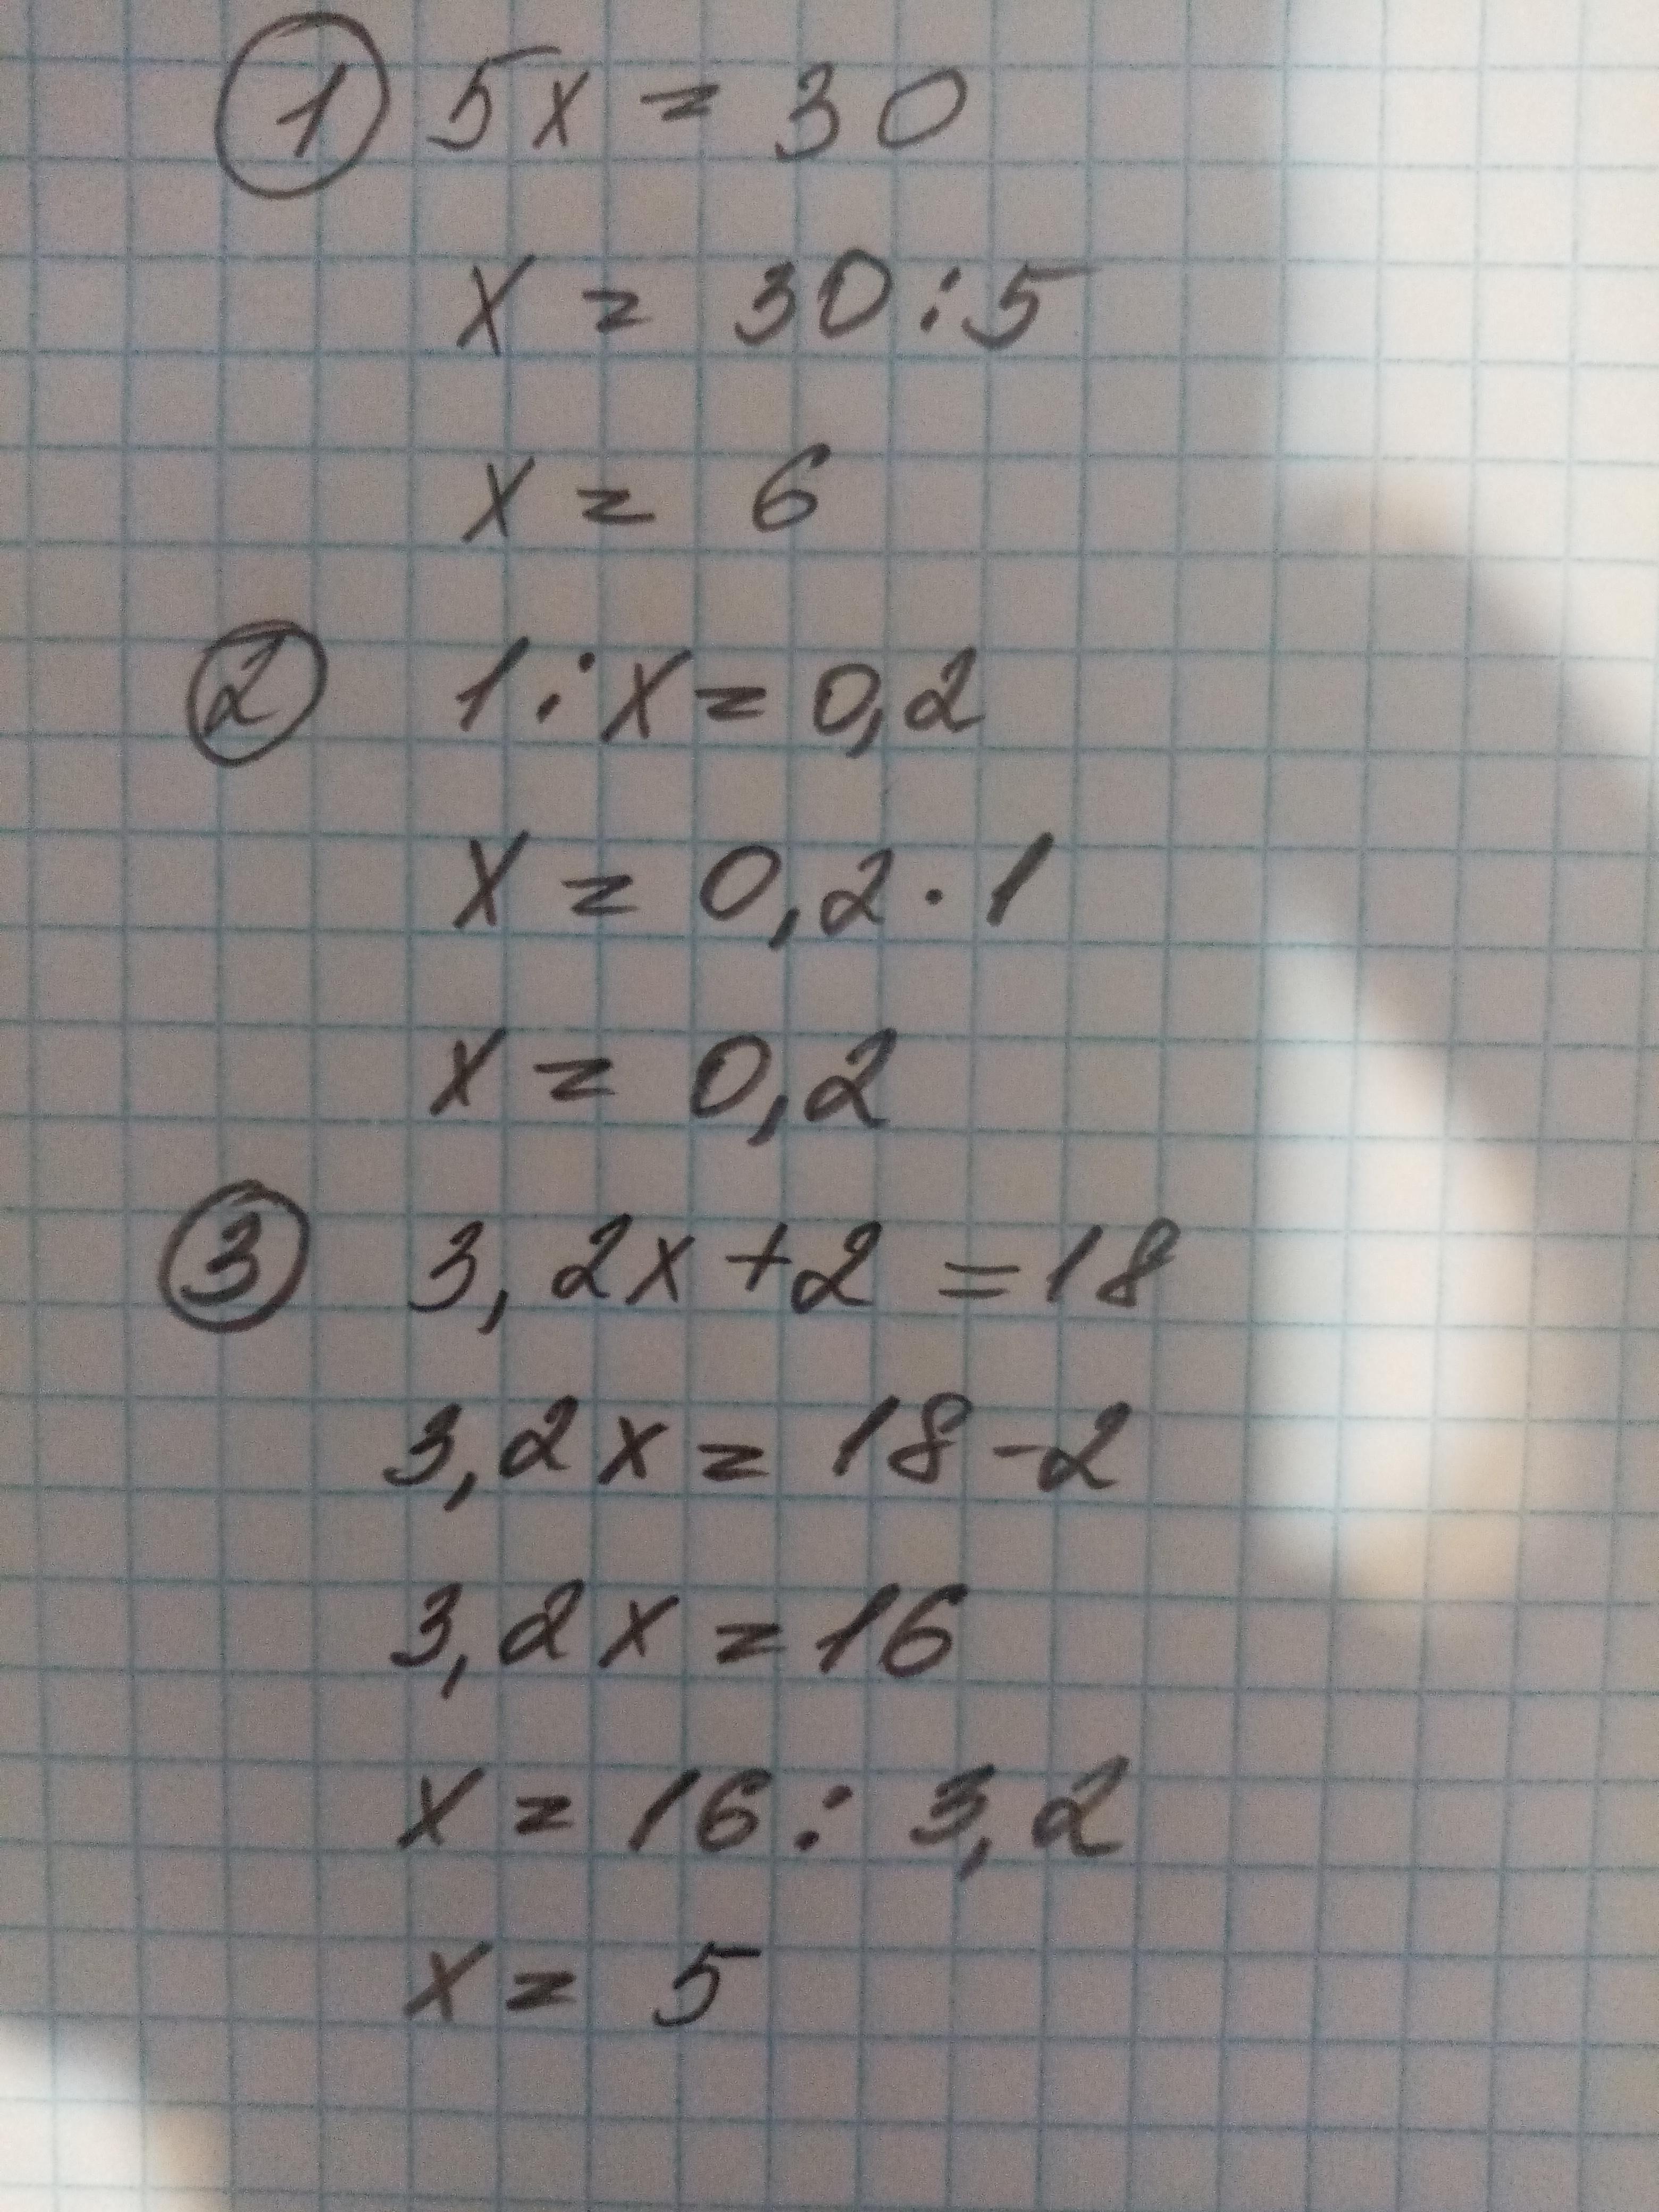 ① 5x = 30
x = 30:5
x = 6
② 1:x = 0,2
x = 0,2·1
x = 0,2
③ 3,2x+2 =18
3,2x = 18-2
3,2x = 16
x = 16: 3,2
x = 5